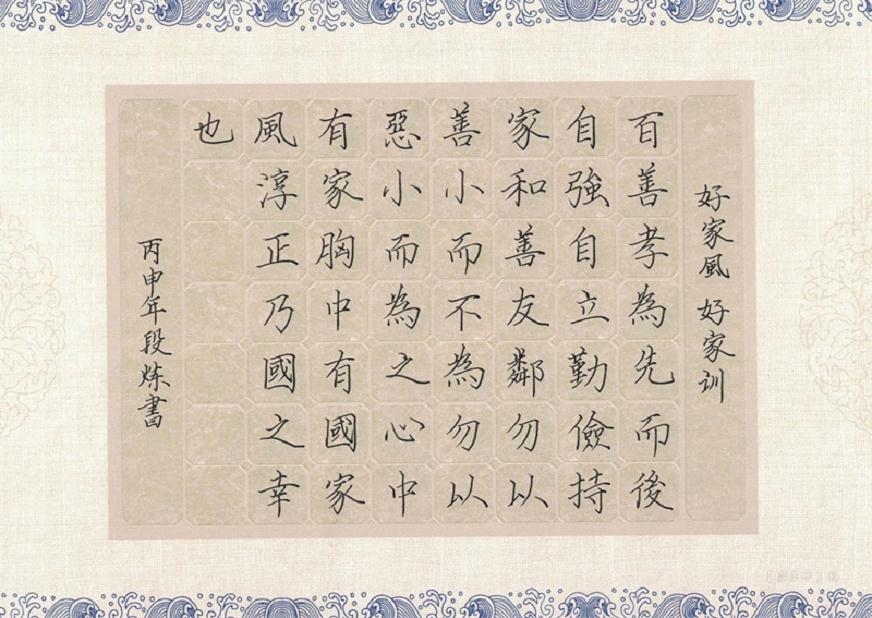 好家风 好家训
百善孝為先而後
自強自立勤儉持
家和善友鄰勿以
善小而不為勿以
惡小而為之心中
有家胸中有國家
風淳正乃國之幸
也
丙申年段炼書